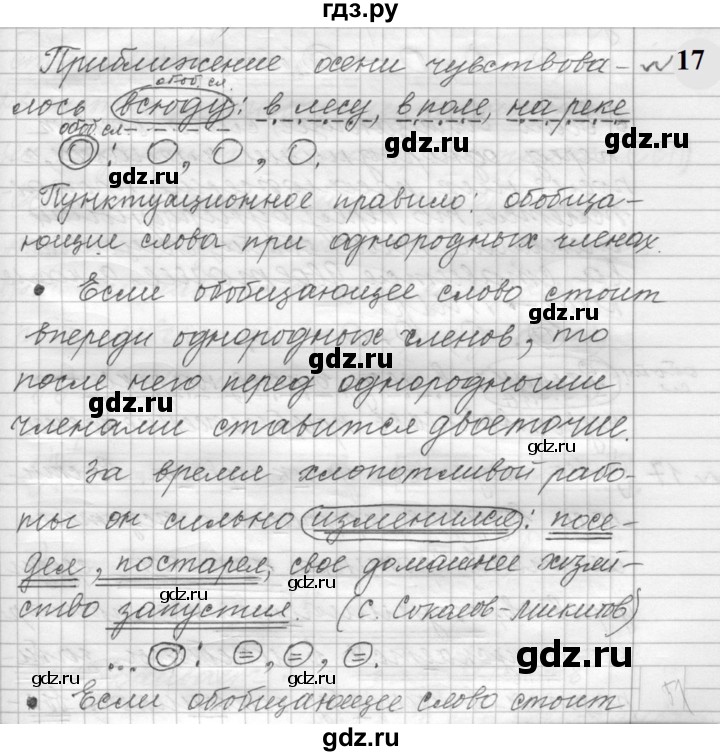 гдз.ру
Приближение осени чувствова- № 17
обоб. сл.
лось всюду: в лесу, в поле, на реке
обоб. сл
gdz.ru
O: O, O, O.
gdz.ru
Пунктуационное правило: обобща-
ющие слова при однородных членах.
gdz.ru
• Если обобщающее слово стоит
gdz.ru
впереди однородных членов, то
gdz.ru
после него перед однородными
gdz.ru
членами ставится двоеточие.
gdz.ru
За время хлопотливой рабо-
gdz.ru
ты он сильно изменился: посе-
дел, постарел, свое домашнее хозяй-
gdz.ru
gdz.ru
ство запустил. (С. Соколов-Микитов)
gdz.ru
... O: =, =, =.
gdz.ru
gdz.ru
• Если обобщающее слово стоит
gdz.ru